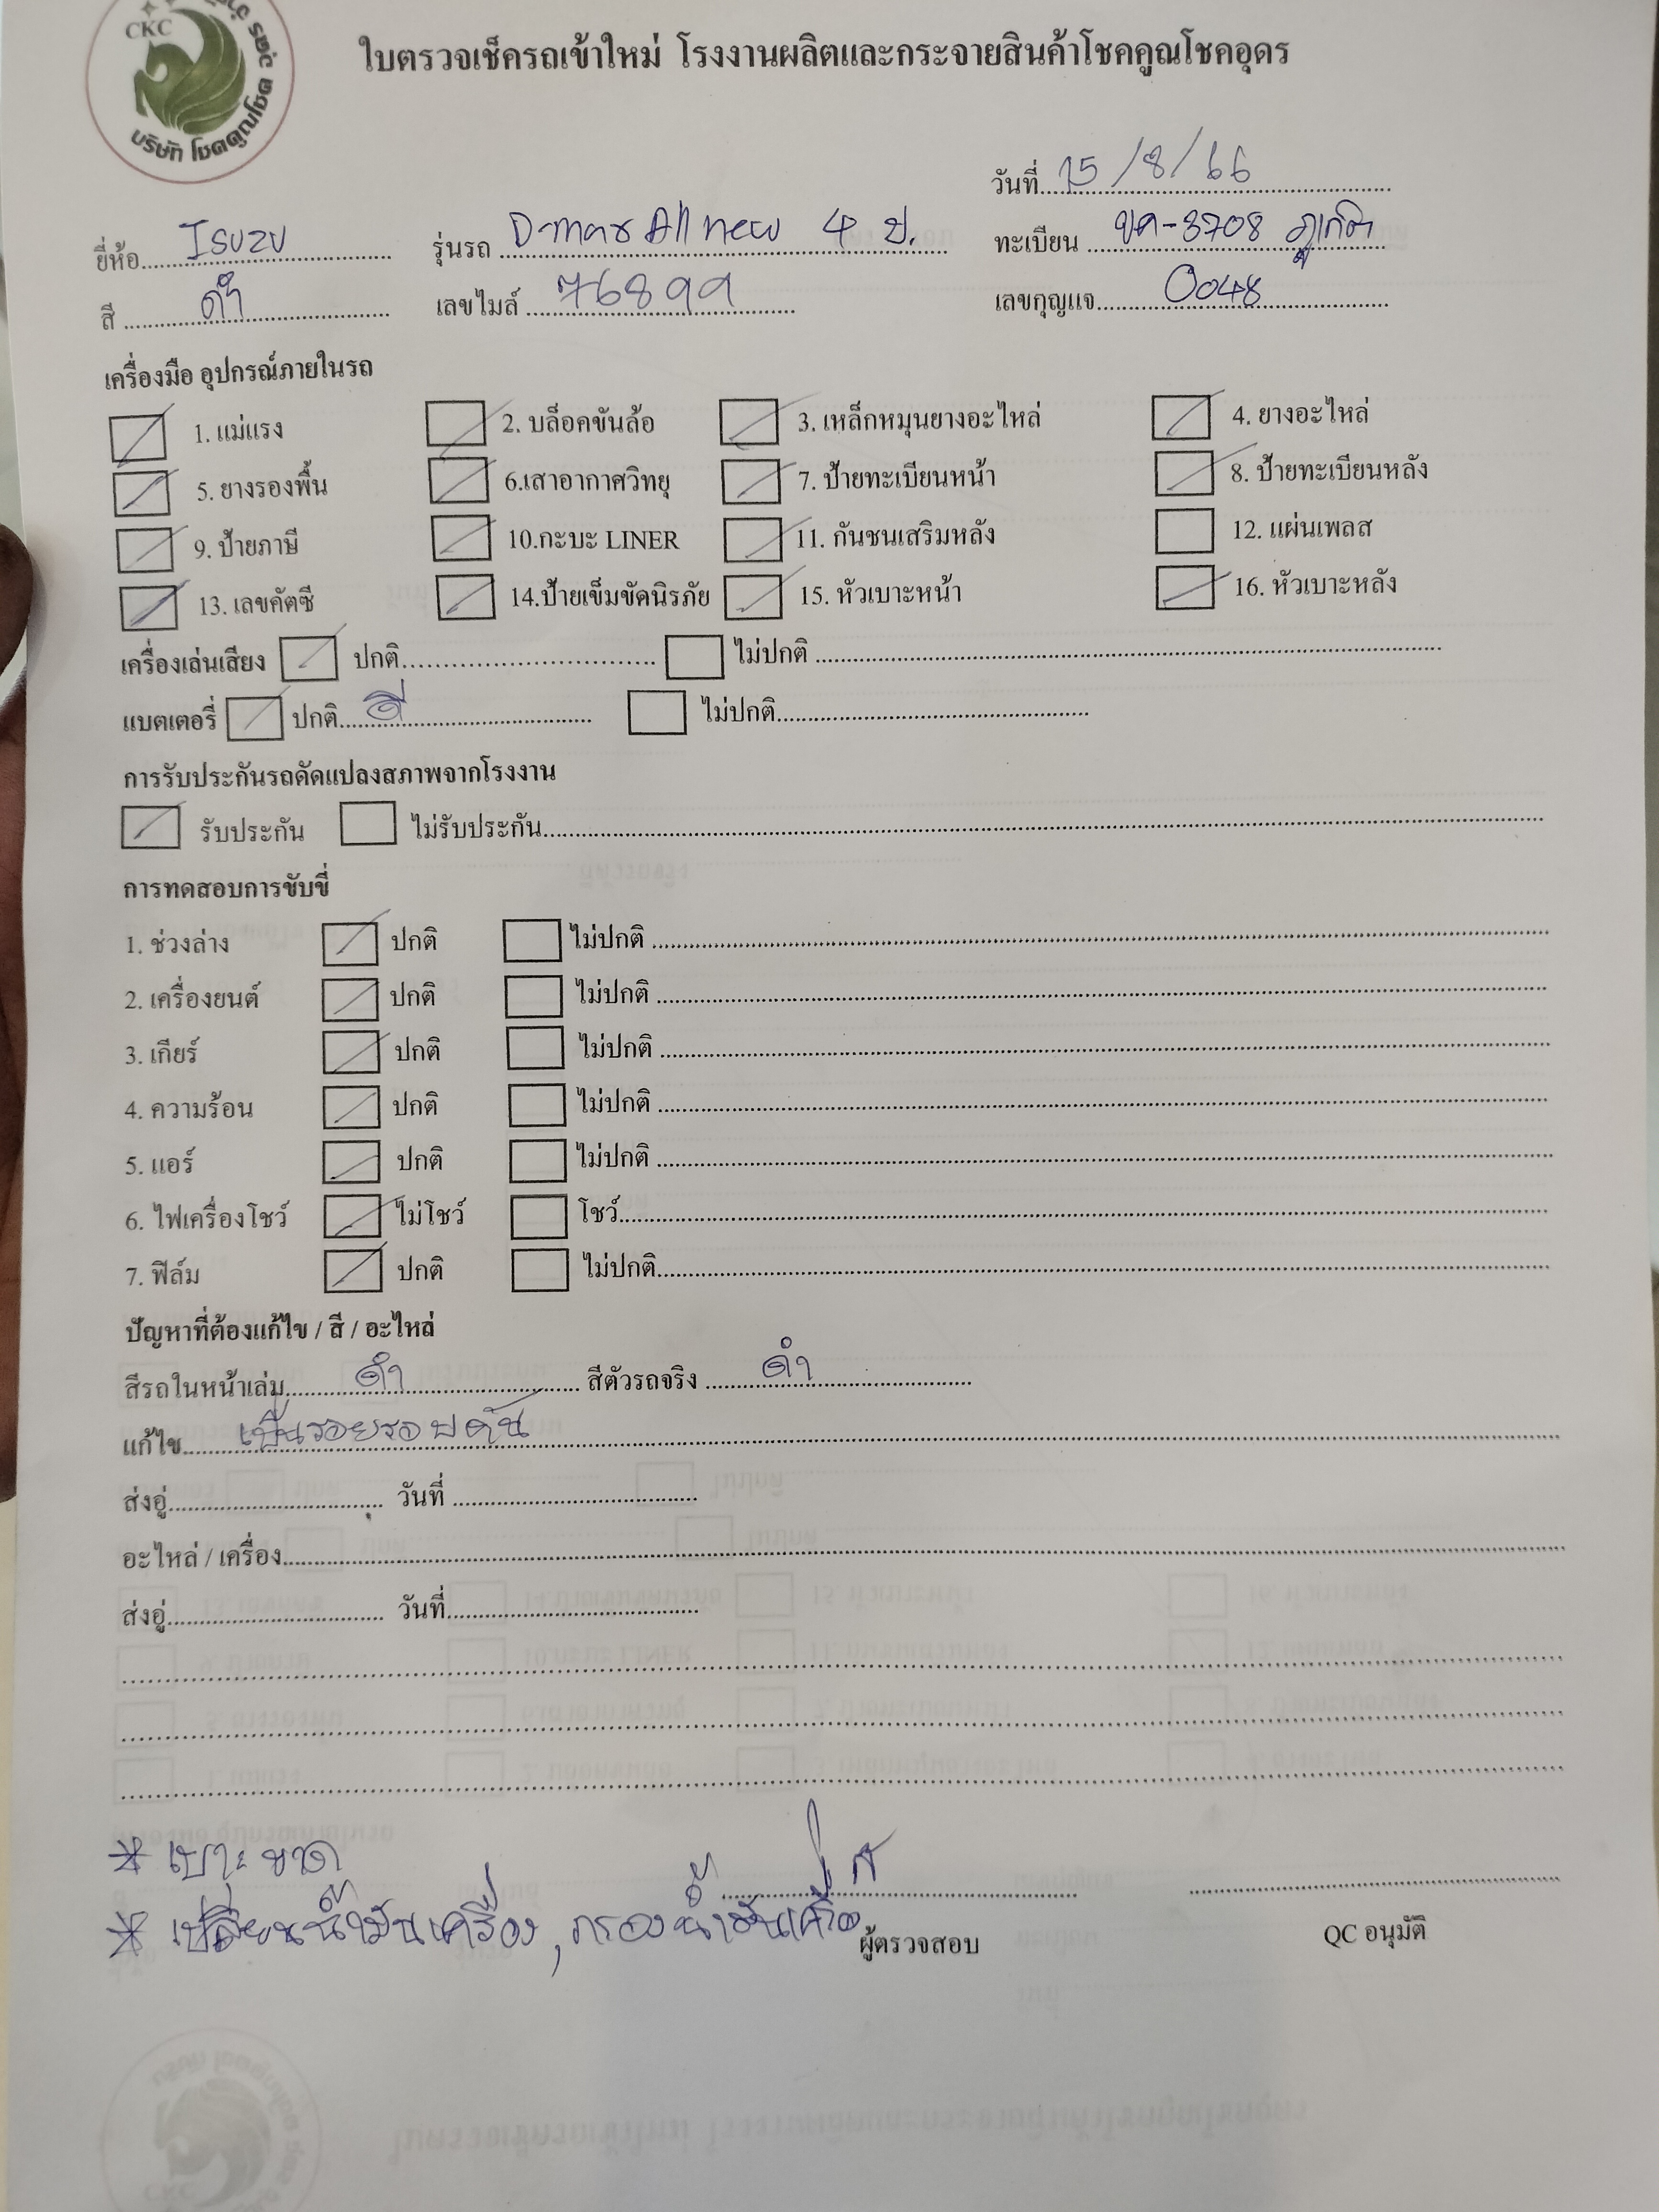 CKC
บริษัท โชคคูณโชค
ใบตรวจเช็ครถเข้าใหม่ โรงงานผลิตและกระจายสินค้าโชคคูณโชคอุดร
วันที่ 15/8/66
ยี่ห้อ Isuzu รุ่นรถ D-max All new 4 ป. ทะเบียน ขค-3708 ภูเก็ต
สี ดำ เลขไมล์ 76899 เลขกุญแจ 0048
เครื่องมือ อุปกรณ์ภายในรถ
1. แม่แรง 2. บล็อคขันล้อ 3. เหล็กหมุนยางอะไหล่ 4. ยางอะไหล่
5. ยางรองพื้น 6.เสาอากาศวิทยุ 7. ป้ายทะเบียนหน้า 8. ป้ายทะเบียนหลัง
9. ป้ายภาษี 10.กะบะ LINER 11. กันชนเสริมหลัง 12. แผ่นเพลส
13. เลขคัตซี 14.ป้ายเข็มขัดนิรภัย 15. หัวเบาะหน้า 16. หัวเบาะหลัง
เครื่องเล่นเสียง ปกติ ไม่ปกติ
แบตเตอรี่ ปกติ ดี ไม่ปกติ
การรับประกันรถดัดแปลงสภาพจากโรงงาน
รับประกัน ไม่รับประกัน
การทดสอบการขับขี่
1. ช่วงล่าง ปกติ ไม่ปกติ
2. เครื่องยนต์ ปกติ ไม่ปกติ
3. เกียร์ ปกติ ไม่ปกติ
4. ความร้อน ปกติ ไม่ปกติ
5. แอร์ ปกติ ไม่ปกติ
6. ไฟเครื่องโชว์ ไม่โชว์ โชว์
7. ฟิล์ม ปกติ ไม่ปกติ
ปัญหาที่ต้องแก้ไข / สี / อะไหล่
สีรถในหน้าเล่ม ดำ สีตัวรถจริง ดำ
แก้ไข เป็นรอยรอบคัน
ส่งอู่ วันที่
อะไหล่ / เครื่อง
ส่งอู่ วันที่
* เบาะขาด
* เปลี่ยนน้ำมันเครื่อง, กรองน้ำมันเครื่อง
ผู้ตรวจสอบ QC อนุมัติ